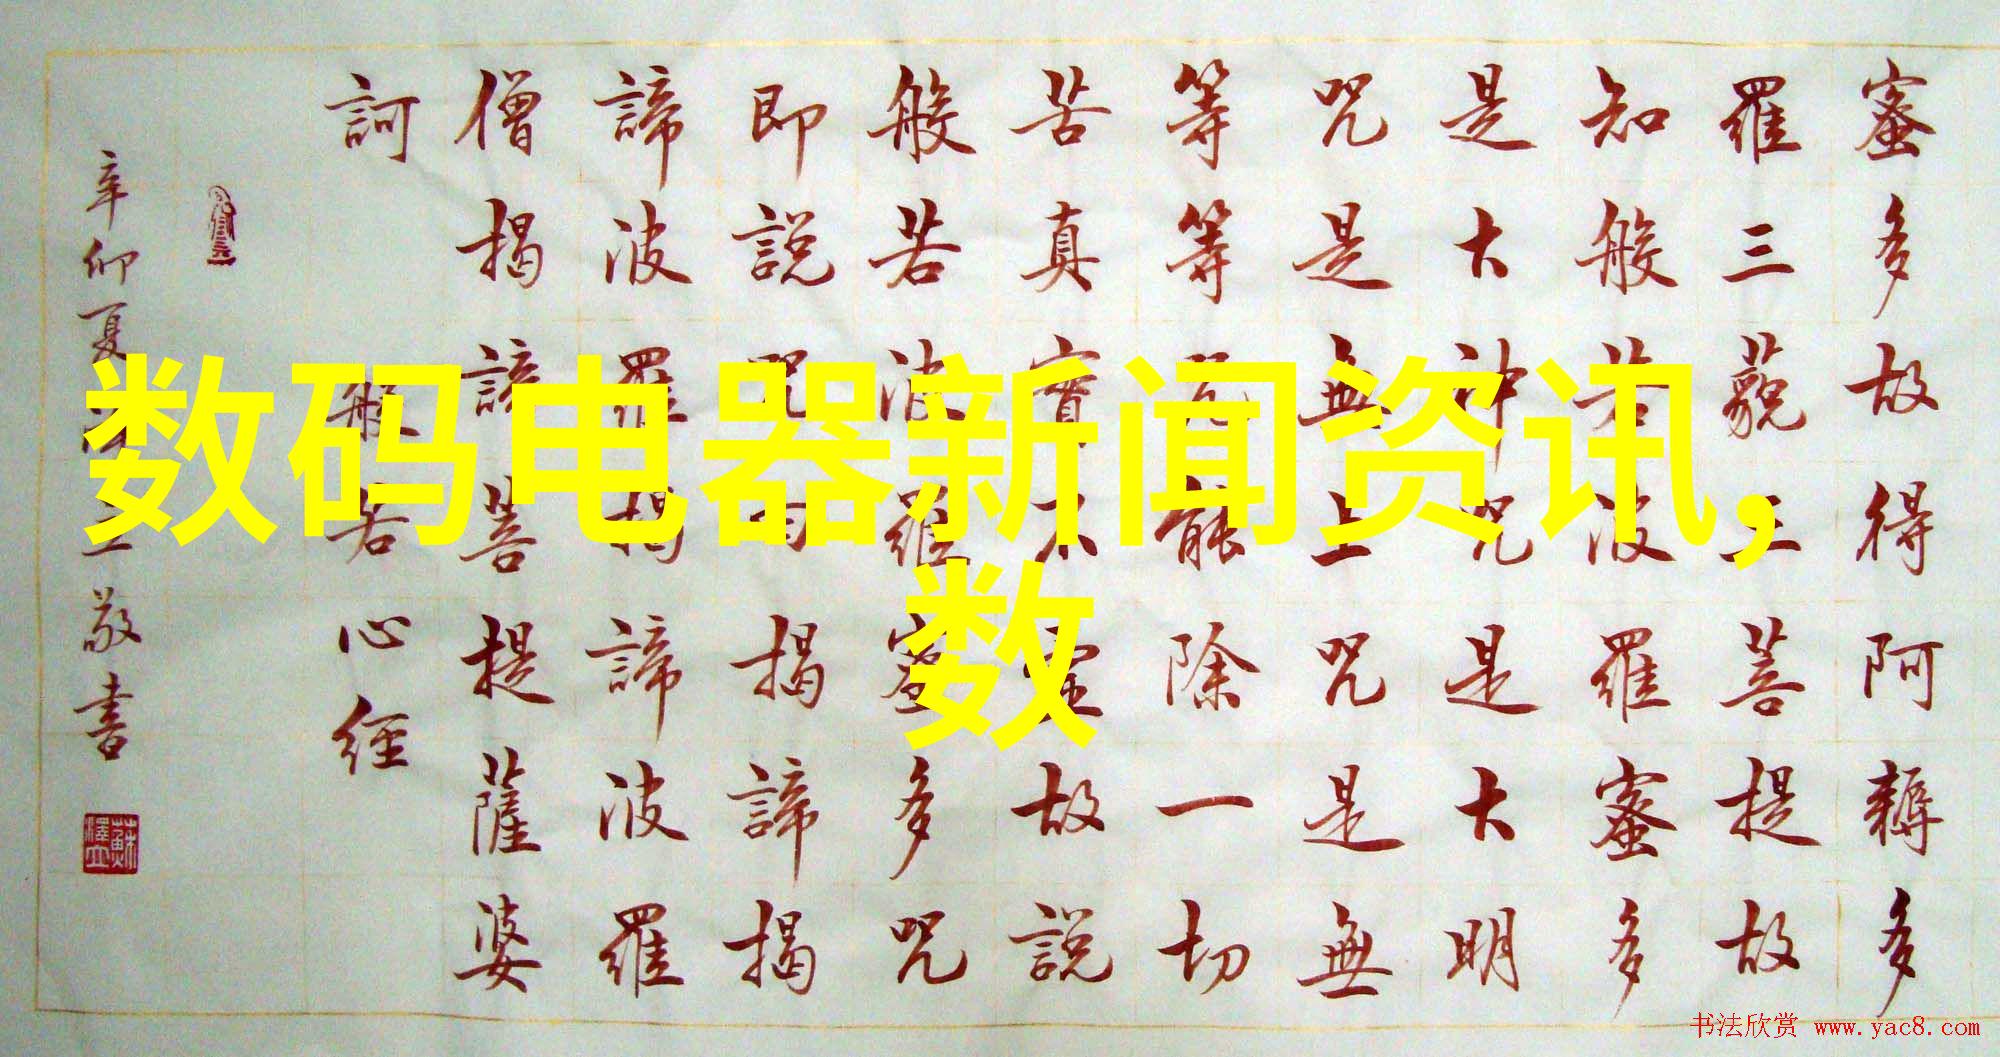 数码电器新闻资讯,
数
蜜多故得阿耨多
羅三藐三菩提故
知般若波羅蜜多
是大神咒是大明
咒是無上咒是無
等等咒能除一切
苦真實不虛故說
般若波羅蜜多咒
即說咒曰揭諦揭
諦波羅揭諦波羅
僧揭諦菩提薩婆
訶
般若心経
辛卯夏立敬書
书法欣赏 www.yac8.com